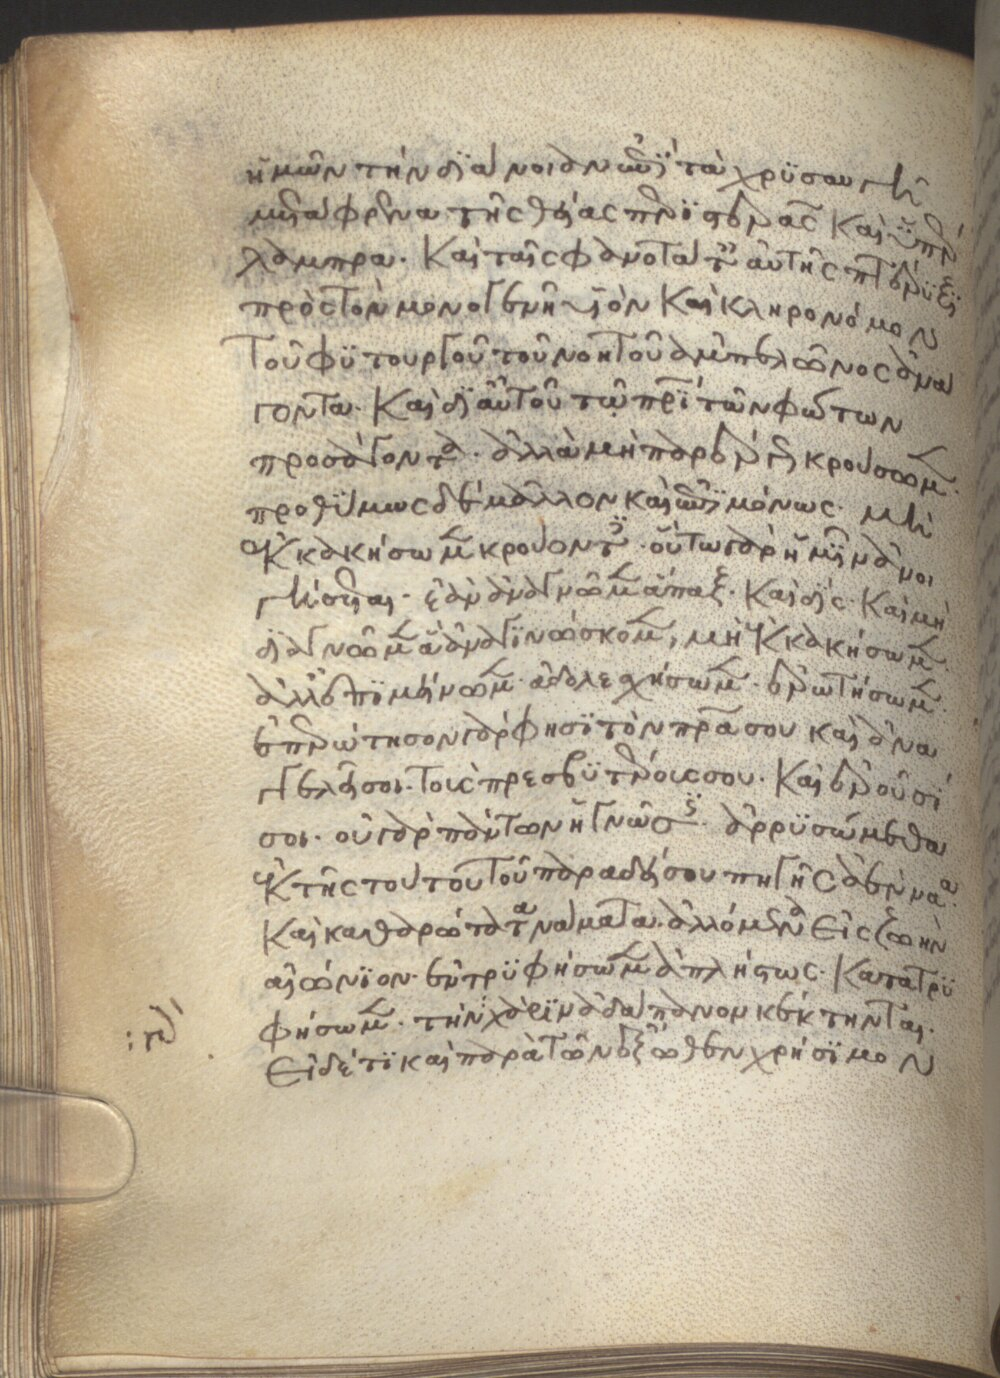 ἡμῶν τὴν διάνοιαν ἐπὶ τὰ χρϋσαυγῆ
μετάφρενα τῆς θείας περιστερᾶς καὶ ὑπέρ
λαμπρα. Καὶ ταῖς φανοτάταις αὐτῆς πτέρυξι
πρὸς τὸν μονογενῆ υἱὸν καὶ κληρονόμον
τοῦ φϋτουργοῦ τοῦ νοητοῦ ἀμπελῶνος ἀνά
γοντα. Καὶ δι αὐτοῦ τῶ πρῒ τῶν φώτων
προσάγοντα. ἀλλὰ μὴ παρέργως κρούσωμεν.
προθύμως δὲ μᾶλλον καὶ ἐπιμόνως. μὴ
ἐκκακήσωμεν κρούοντες. οὕτω γὰρ ἡμῖν ἀνοι
γήσεται. ἐὰν ἀναγνῶμεν ἅπαξ. Καὶ δίς. Καὶ μὴ
διαγνῶμεν ἃ ἀναγϊνώσκομεν, μὴ ἐκκακήσωμεν.
ἀλλ ἐπιμείνωμεν. ἀδολεχήσωμεν. ἐρωτήσωμεν.
ἐπερώτησον γάρ φησϊ τὸν πρα σου καὶ ἀνα
γγελεῖ σοι. τοὺς πρεσβϋτέρους σου. Καὶ ἐροῦσί
σοι. οὐ γὰρ πάντων ἡ γνῶσις. ἀρρϋσώμεθα
ἐκ τῆς τούτου τοῦ παραδείσου πηγῆς ἀένναα.
Καὶ καθαρώτατα νάματα. ἁλλόμενα εἰς ζωὴν
αἰώνϊον. ἐντρϋφήσωμεν ἀπλήστως. Κατατρϋ
φήσωμεν. τὴν χάρϊν ἀδάπανον κέκτηνται.
Εἰ δέ τϊ καὶ παρὰ τῶν ἔξωθεν χρήσϊμον